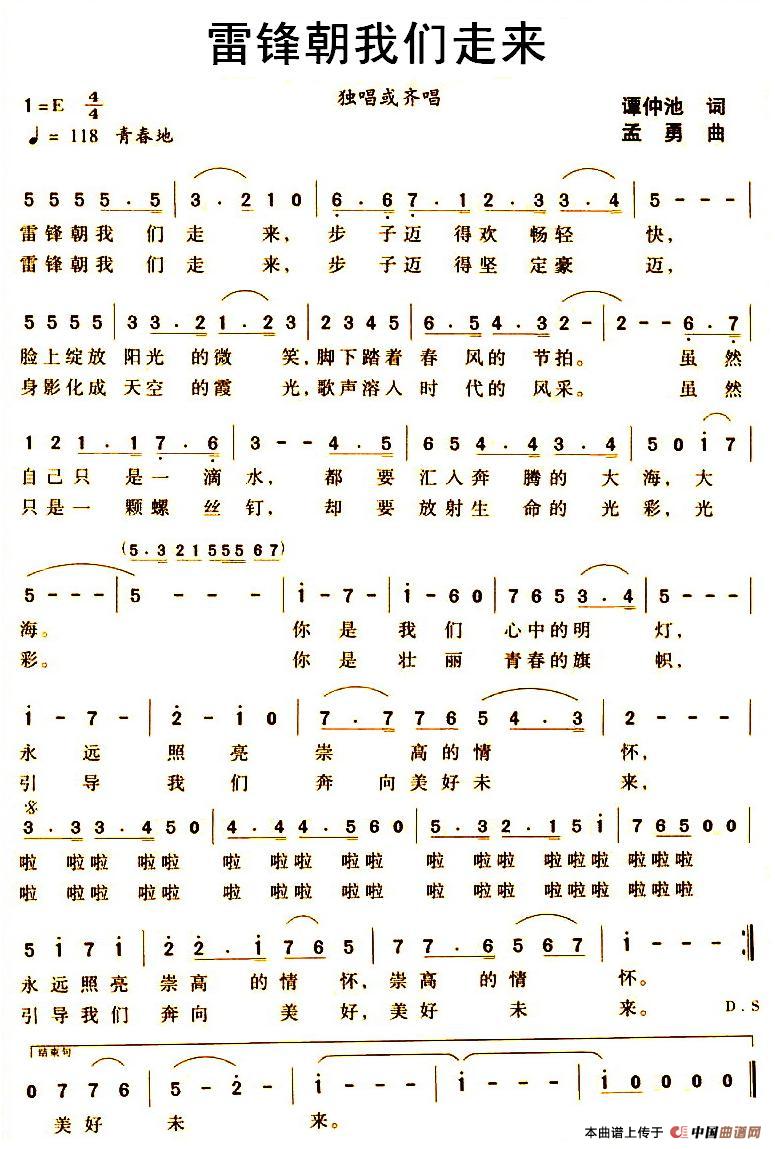 雷锋朝我们走来
1=E 4/4 独唱或齐唱 谭仲池 词
♩= 118 青春地 孟勇 曲
5 5 5 5 5 · 5 | 3 · 2 1 0 | 6 · 6 7 · 1 2 · 3 3 · 4 | 5 - - - |
雷锋朝我们走来，步子迈得欢畅轻快，
雷锋朝我们走来，步子迈得坚定豪迈，
5 5 5 5 | 3 3 · 2 1 · 2 3 | 2 3 4 5 | 6 · 5 4 · 3 2 - | 2 - - 6 · 7 |
脸上绽放阳光的微笑，脚下踏着春风的节拍。虽然
身影化成天空的霞光，歌声溶人时代的风采。虽然
1 2 1 · 1 7 · 6 | 3 - - 4 · 5 | 6 5 4 · 4 3 · 4 | 5 0 1 7 |
自己只是一滴水，都要汇人奔腾的大海，大
只是一颗螺丝钉，却要放射生命的光彩，光
(5 · 3 2 1 5 5 5 5 6 7)
5 - - - | 5 - - - | 1 - 7 - | 1 - 6 0 | 7 6 5 3 · 4 | 5 - - - |
海。你是我们心中的明灯，
彩。你是壮丽青春的旗帜，
1 - 7 - | 2 - 1 0 | 7 · 7 7 6 5 4 · 3 | 2 - - - |
永远照亮崇高的情怀，
引导我们奔向美好未来，
3 · 3 3 · 4 5 0 | 4 · 4 4 · 5 6 0 | 5 · 3 2 · 1 5 1 | 7 6 5 0 0 |
啦 啦啦 啦啦 啦 啦啦 啦啦 啦 啦啦 啦啦啦啦 啦啦啦
啦 啦啦 啦啦 啦 啦啦 啦啦 啦 啦啦 啦啦啦啦 啦啦啦
5 1 7 1 | 2 2 · 1 7 6 5 | 7 7 · 6 5 6 7 | 1 - - - :|
永远照亮崇高的情怀，崇高的情怀。
引导我们奔向美好，美好未来。 D.S
结束句
0 7 7 6 | 5 - 2 - | 1 - - - | 1 - - - | 1 0 0 0 |
美好未来。
本曲谱上传于 中国曲谱网